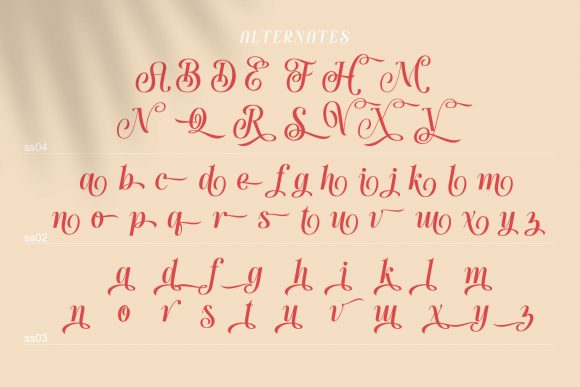 ALTERNATES
A B D E F H M
N Q R S V X Y
ss04
a b c d e f g h i j k l m
n o p q r s t u v w x y z
ss02
a d f g h i k l m
n o r s t u v w x y z
ss03